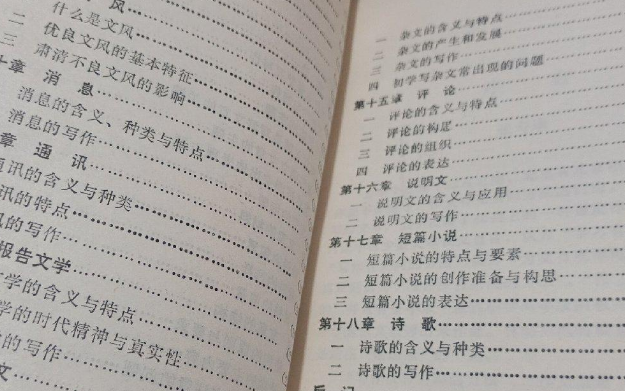 风
什么是文风
二 优良文风的基本特征
三 肃清不良文风的影响
十章 消 息
消息的含义、种类与特点
消息的写作
章 通 讯
通讯的含义与种类
讯的特点
讯的写作
报告文学
学的含义与特点
学的时代精神与真实性
的写作
文
一 杂文的含义与特点
二 杂文的产生和发展
三 杂文的写作
四 初学写杂文常出现的问题
第十五章 评 论
一 评论的含义与特点
二 评论的构思
三 评论的组织
四 评论的表达
第十六章 说明文
一 说明文的含义与应用
二 说明文的写作
第十七章 短篇小说
一 短篇小说的特点与要素
二 短篇小说的创作准备与构思
三 短篇小说的表达
第十八章 诗 歌
一 诗歌的含义与种类
二 诗歌的写作
后 记